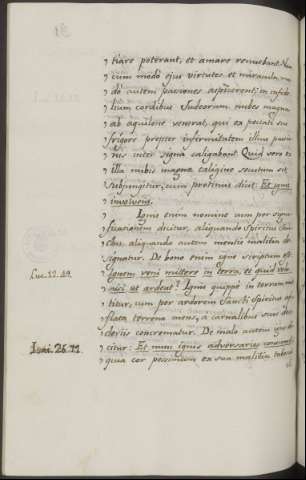 tiare poterant, et amare renuebant. Nam
cum modo ejus virtutes et miracula, mo
dò autem passiones aspicerent; in infide
lium cordibus Judeorum nubes magna
ab aquilone venerat, quæ ex peccati sui
frigore propter infirmitatem illius passio
nis inter signa caligabant. Quid vero ex
illa nubis magnæ caligine secutum est
subjungitur, cum protinus dicit. Et ignis
involvens.
Ignis enim nomine cum per signi
ficationem dicitur, aliquando Spiritus Sanc
tus, aliquando autem mentis malitia de
signatur. De bono enim igne scriptum est:
Luc. 12. 49
Ignem veni mittere in terra, et quid volo
nisi ut ardeat? Ignis quippè in terram mit
titur, cum per ardorem Sancti Spiritus af
flata terrena mens, a carnalibus suis de
sideriis concrematur. De malo autem igne di
Isai. 26. 11
citur: Et nunc ignis adversarios consumit
quia cor pessimum ex sua malitia tabescit